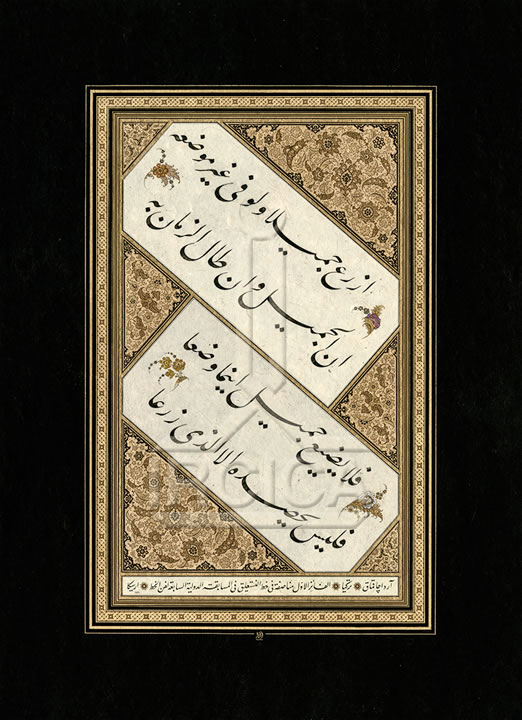 ازرع جميلا ولو في غير موضعه
ان الجميل وان طال الزمان به
فلا يضيع جميل اينما وضعا
فليس يحصده الا الذي زرعا
آردا چاقماق تركيا الفائز الاول مناصفة في خط النستعليق في المسابقة الدولية السابعة لفن الخط إرسيكا
IRCICA